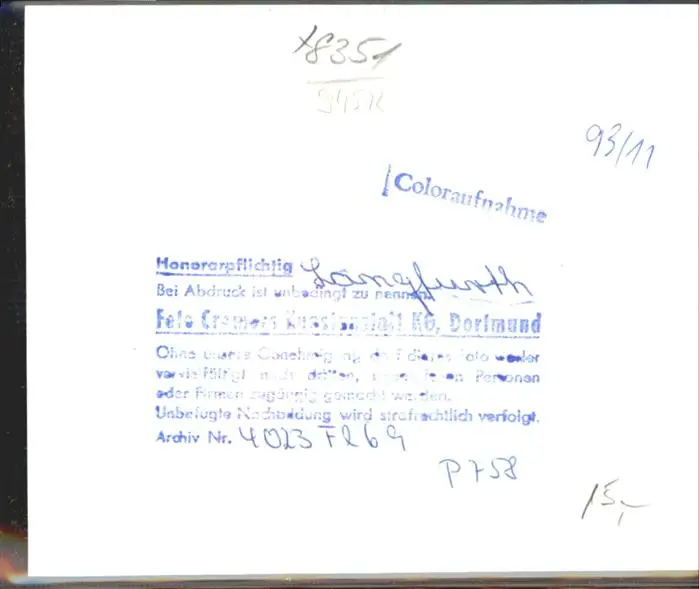 8351
93/11
Coloraufnahme
Honorarpflichtig Langfurth
Bei Abdruck ist unbedingt zu nennen:
Foto Cramers Kunstanstalt KG, Dortmund
Ohne unsere Genehmigung darf dieses Foto weder
vervielfältigt noch dritten, Personen
oder Firmen zugängig gemacht werden.
Unbefugte Nachbildung wird strafrechtlich verfolgt.
Archiv Nr. 4023 F 269
P758
15,-